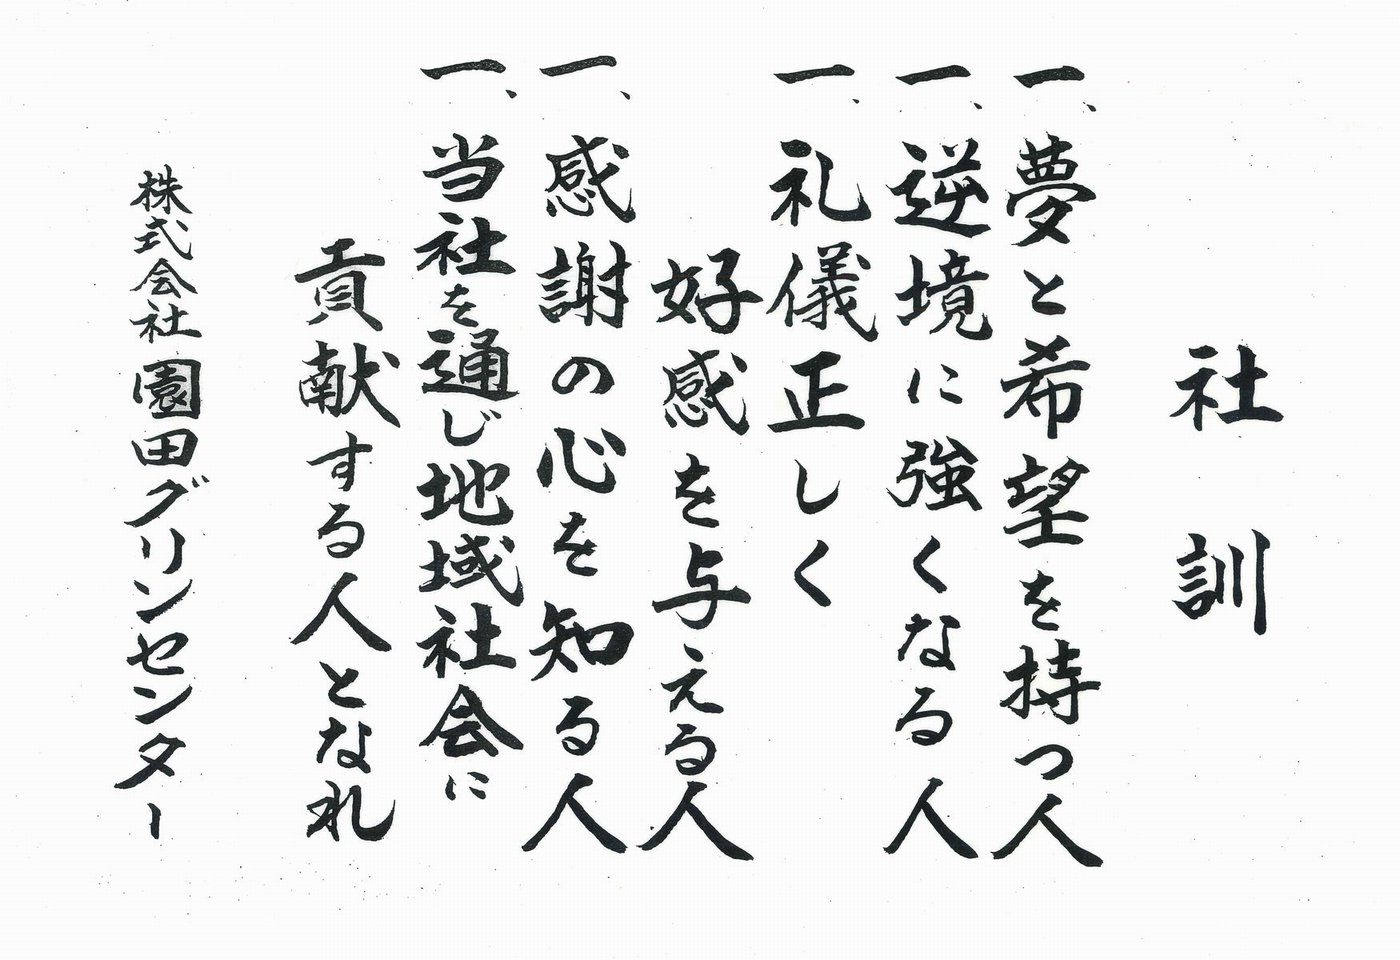 社訓
一、夢と希望を持つ人
一、逆境に強くなる人
一、礼儀正しく
好感を与える人
一、感謝の心を知る人
一、当社を通じ地域社会に
貢献する人となれ
株式会社園田グリンセンター